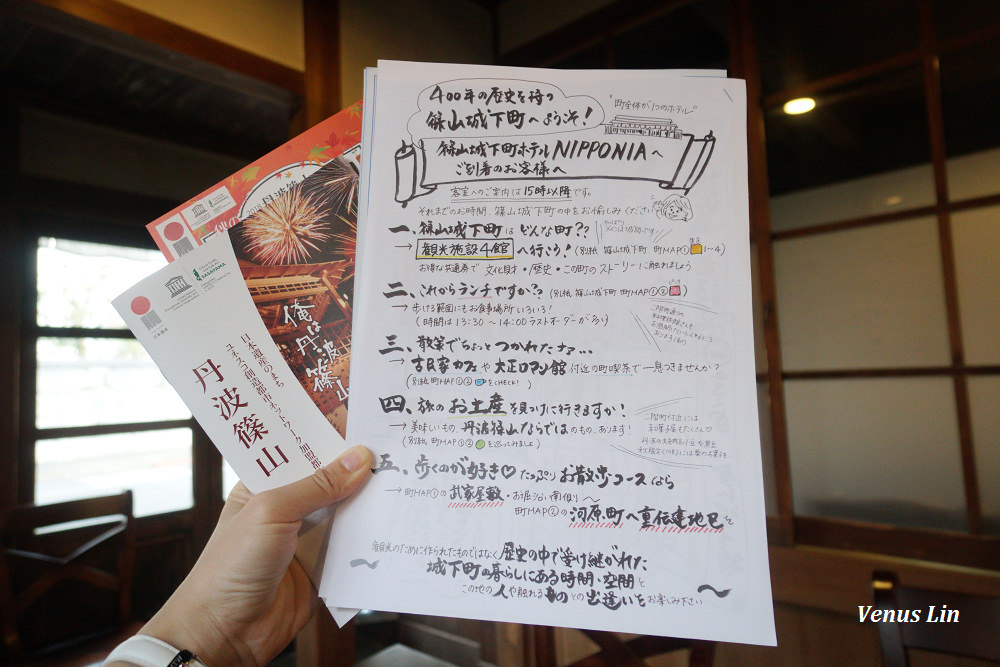 400年の歴史を持つ
篠山城下町へようこそ!
"町全体が1つのホテル"
篠山城下町ホテルNIPPONIAへ
ご到着のお客様へ
客室へのご案内は15時以降です。
それまでのお時間、篠山城下町の中をお愉しみください
一、篠山城下町はどんな町??
→観光施設4館へ行こう!(別紙 篠山城下町 町MAP① 1〜4)
お得な共通券で 文化財・歴史・この町のストーリーに触れましょう
二、これからランチですか??(別紙 篠山城下町 町MAP①②)
→歩ける範囲にもお食事場所いろいろ!
(時間は13:30〜14:00ラストオーダーが多い)
三、散策でちょっとつかれたナァ...
→古民家カフェや大正ロマン館付近の町喫茶で一息つきませんか?
(別紙 町MAP①② をCHECK!)
四、旅のお土産を見つけに行きますか!
→美味しいもの、丹波篠山ならではのもの、あります!
(別紙 町MAP①② を巡ってみましょ)
二階町付近には
和菓子屋もたくさん
五、歩くのが好き♡たっぷりお散歩コースなら
→町MAP①の武家屋敷・お堀沿い南側り〜
町MAP②の河原町へ重伝建地区を
観光のために作られたものではなく歴史の中で受け継がれた
城下町の暮らしにある時間・空間と
この地の人や触れるものとの出逢いをお楽しみ下さい
俺は丹波篠山
日本遺産のまち
ユネスコ創造都市ネットワーク加盟都
丹波篠山
Venus Lin